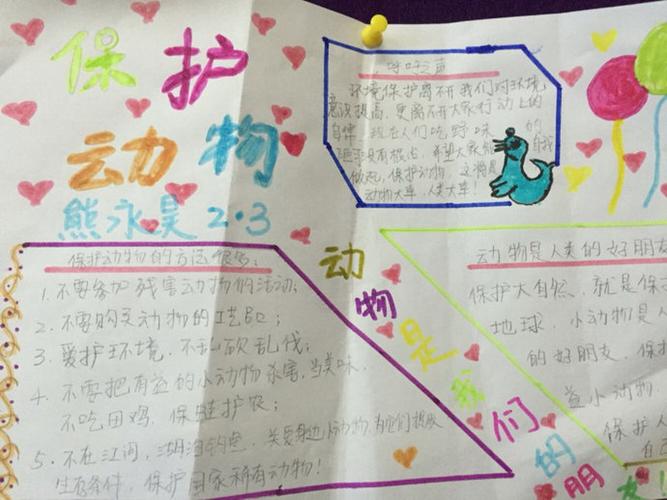 保护
动物
熊永昊 2·3
呼吁之声
环境保护离不开我们对环境
意识提高,更离不开大家行动上的
自律,现在人们吃野味的
没有根,希望大家能
做起,保护动物,
动物大年,人类大年!
保护动物的方法很多:
1.不要参加残害动物的活动;
2.不要购买动物的工艺品;
3.爱护环境,不乱砍乱伐;
4.不要把有益的小动物杀害,当美味,
不吃田鸡,保护农;
5.不在江河,湖泊钓鱼,关爱身边小动物,为它们提供
生存条件,保护国家稀有动物!
动物是我们的朋友
动物是人类的好朋友
保护大自然,就是保
地球,小动物是人
的好朋友,保护
益小动物
保护人
自己